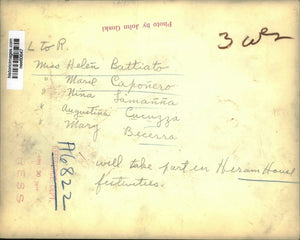 Photo by John Gorski
3 cols
L to R.
Miss Helen Battiato
" Marie Caponero
" Nina Samanna
" Augustina Cucuzza
" Mary Becerra
will take part in Hiram House
festivities.
A6822
historicimages.com